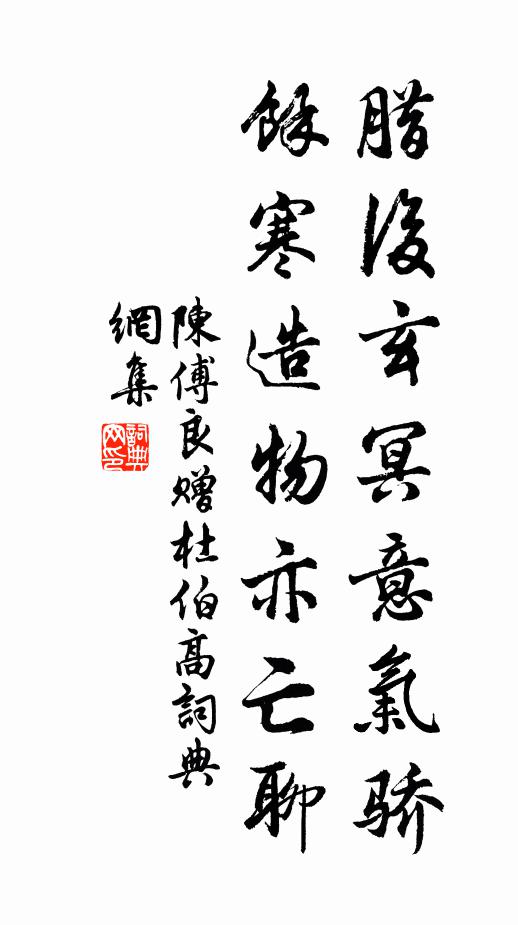 腊後玄冥意氣骄
餘寒造物亦亡聊
陳傅良贈杜伯高詞典
網集
詞典
网印